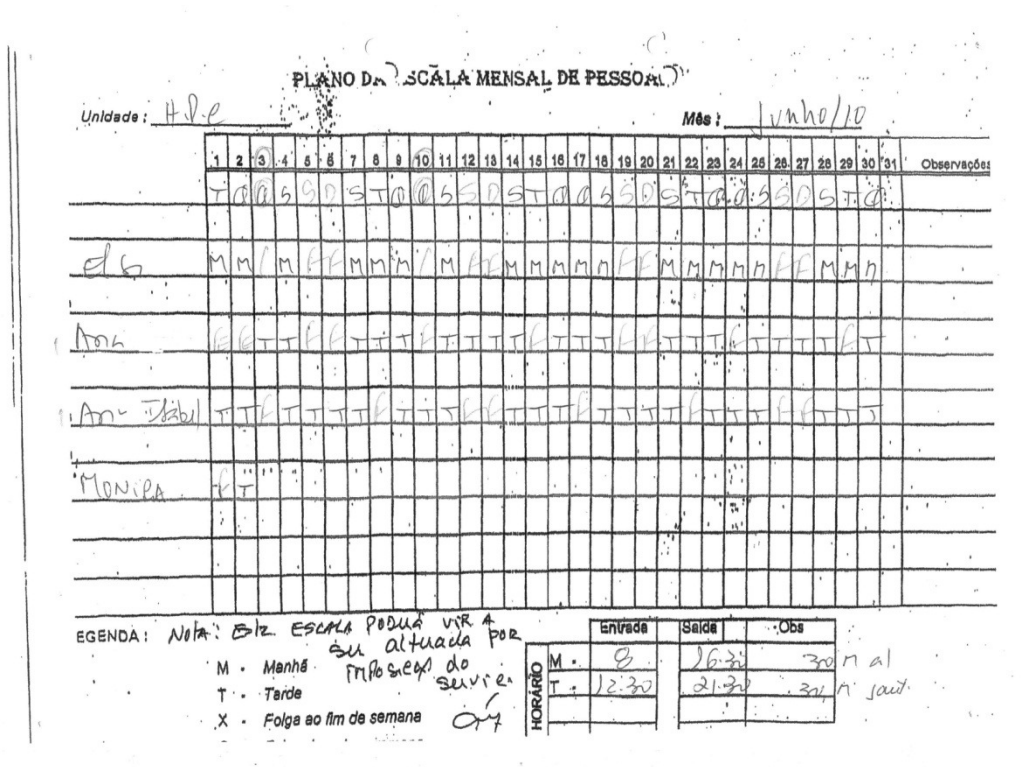 PLANO DA ESCALA MENSAL DE PESSOAL
Unidade : H.P.C Mês : Junho/10
1 2 3 4 5 6 7 8 9 10 11 12 13 14 15 16 17 18 19 20 21 22 23 24 25 26 27 28 29 30 31 Observações
T Q Q S S D S T Q Q S S D S T Q Q S S D S T Q Q S S D S T Q
M M / M F F M M M / M F F M M M M M F F M M M M M F F M M M
Ana F F T T F F T T T F T T T T F T T T F F T T T F T T T T F T
Ana Isabel T T F T T T T F T T T F F T T T F T T T T F T T T F F T T T
MONICA F T
EGENDA : Nota: Esta ESCALA PODERÁ VIR A
ser alterada por
M - Manhã imposição do
T - Tarde serviço
X - Folga ao fim de semana
Entrada Saida Obs
HORÁRIO
M - 8 16.30 30 m al
T - 12.30 21.30 30 m jant.